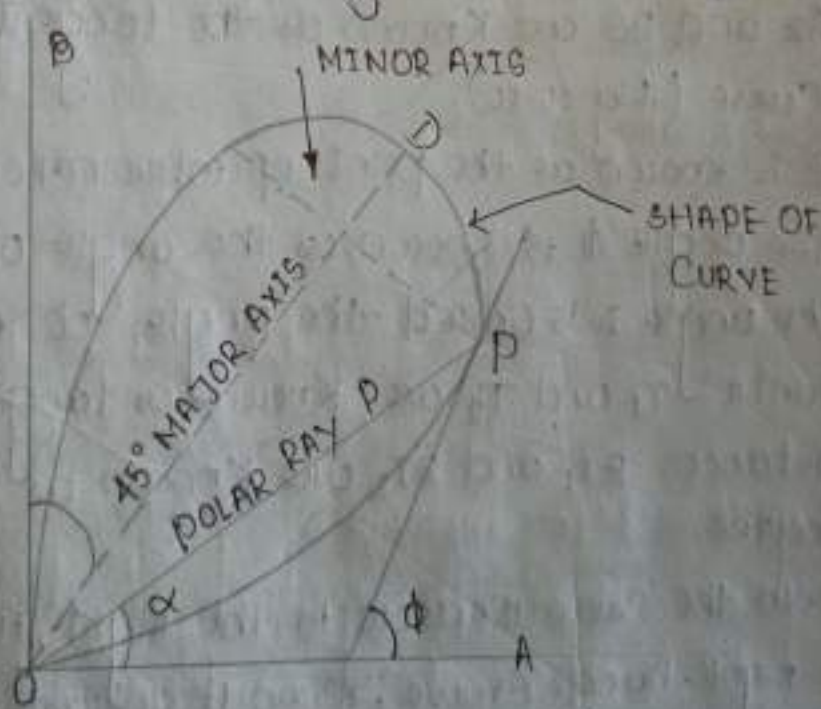 B
MINOR AXIS
D
SHAPE OF
CURVE
P
45° MAJOR AXIS
POLAR RAY P
α
ϕ
A
O